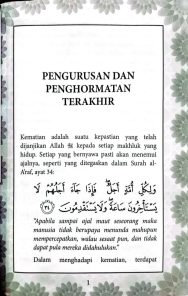 PENGURUSAN DAN
PENGHORMATAN
TERAKHIR
Kematian adalah suatu kepastian yang telah
dijanjikan Allah ﷻ kepada setiap makhluk yang
hidup. Setiap yang bernyawa pasti akan menemui
ajalnya, seperti yang ditegaskan dalam Surah al-
A'raf, ayat 34:
وَلِكُلِّ أُمَّةٍ أَجَلٌ ۖ فَإِذَا جَاءَ أَجَلُهُمْ لَا
يَسْتَأْخِرُونَ سَاعَةً وَلَا يَسْتَقْدِمُونَ ﴿٣٤﴾
"Apabila sampai ajal maut seseorang maka
manusia tidak berupaya menunda mahupun
mempercepatkan, walau sesaat pun, dan tidak
dapat pula mereka didahulukan."
Dalam menghadapi kematian, terdapat
1